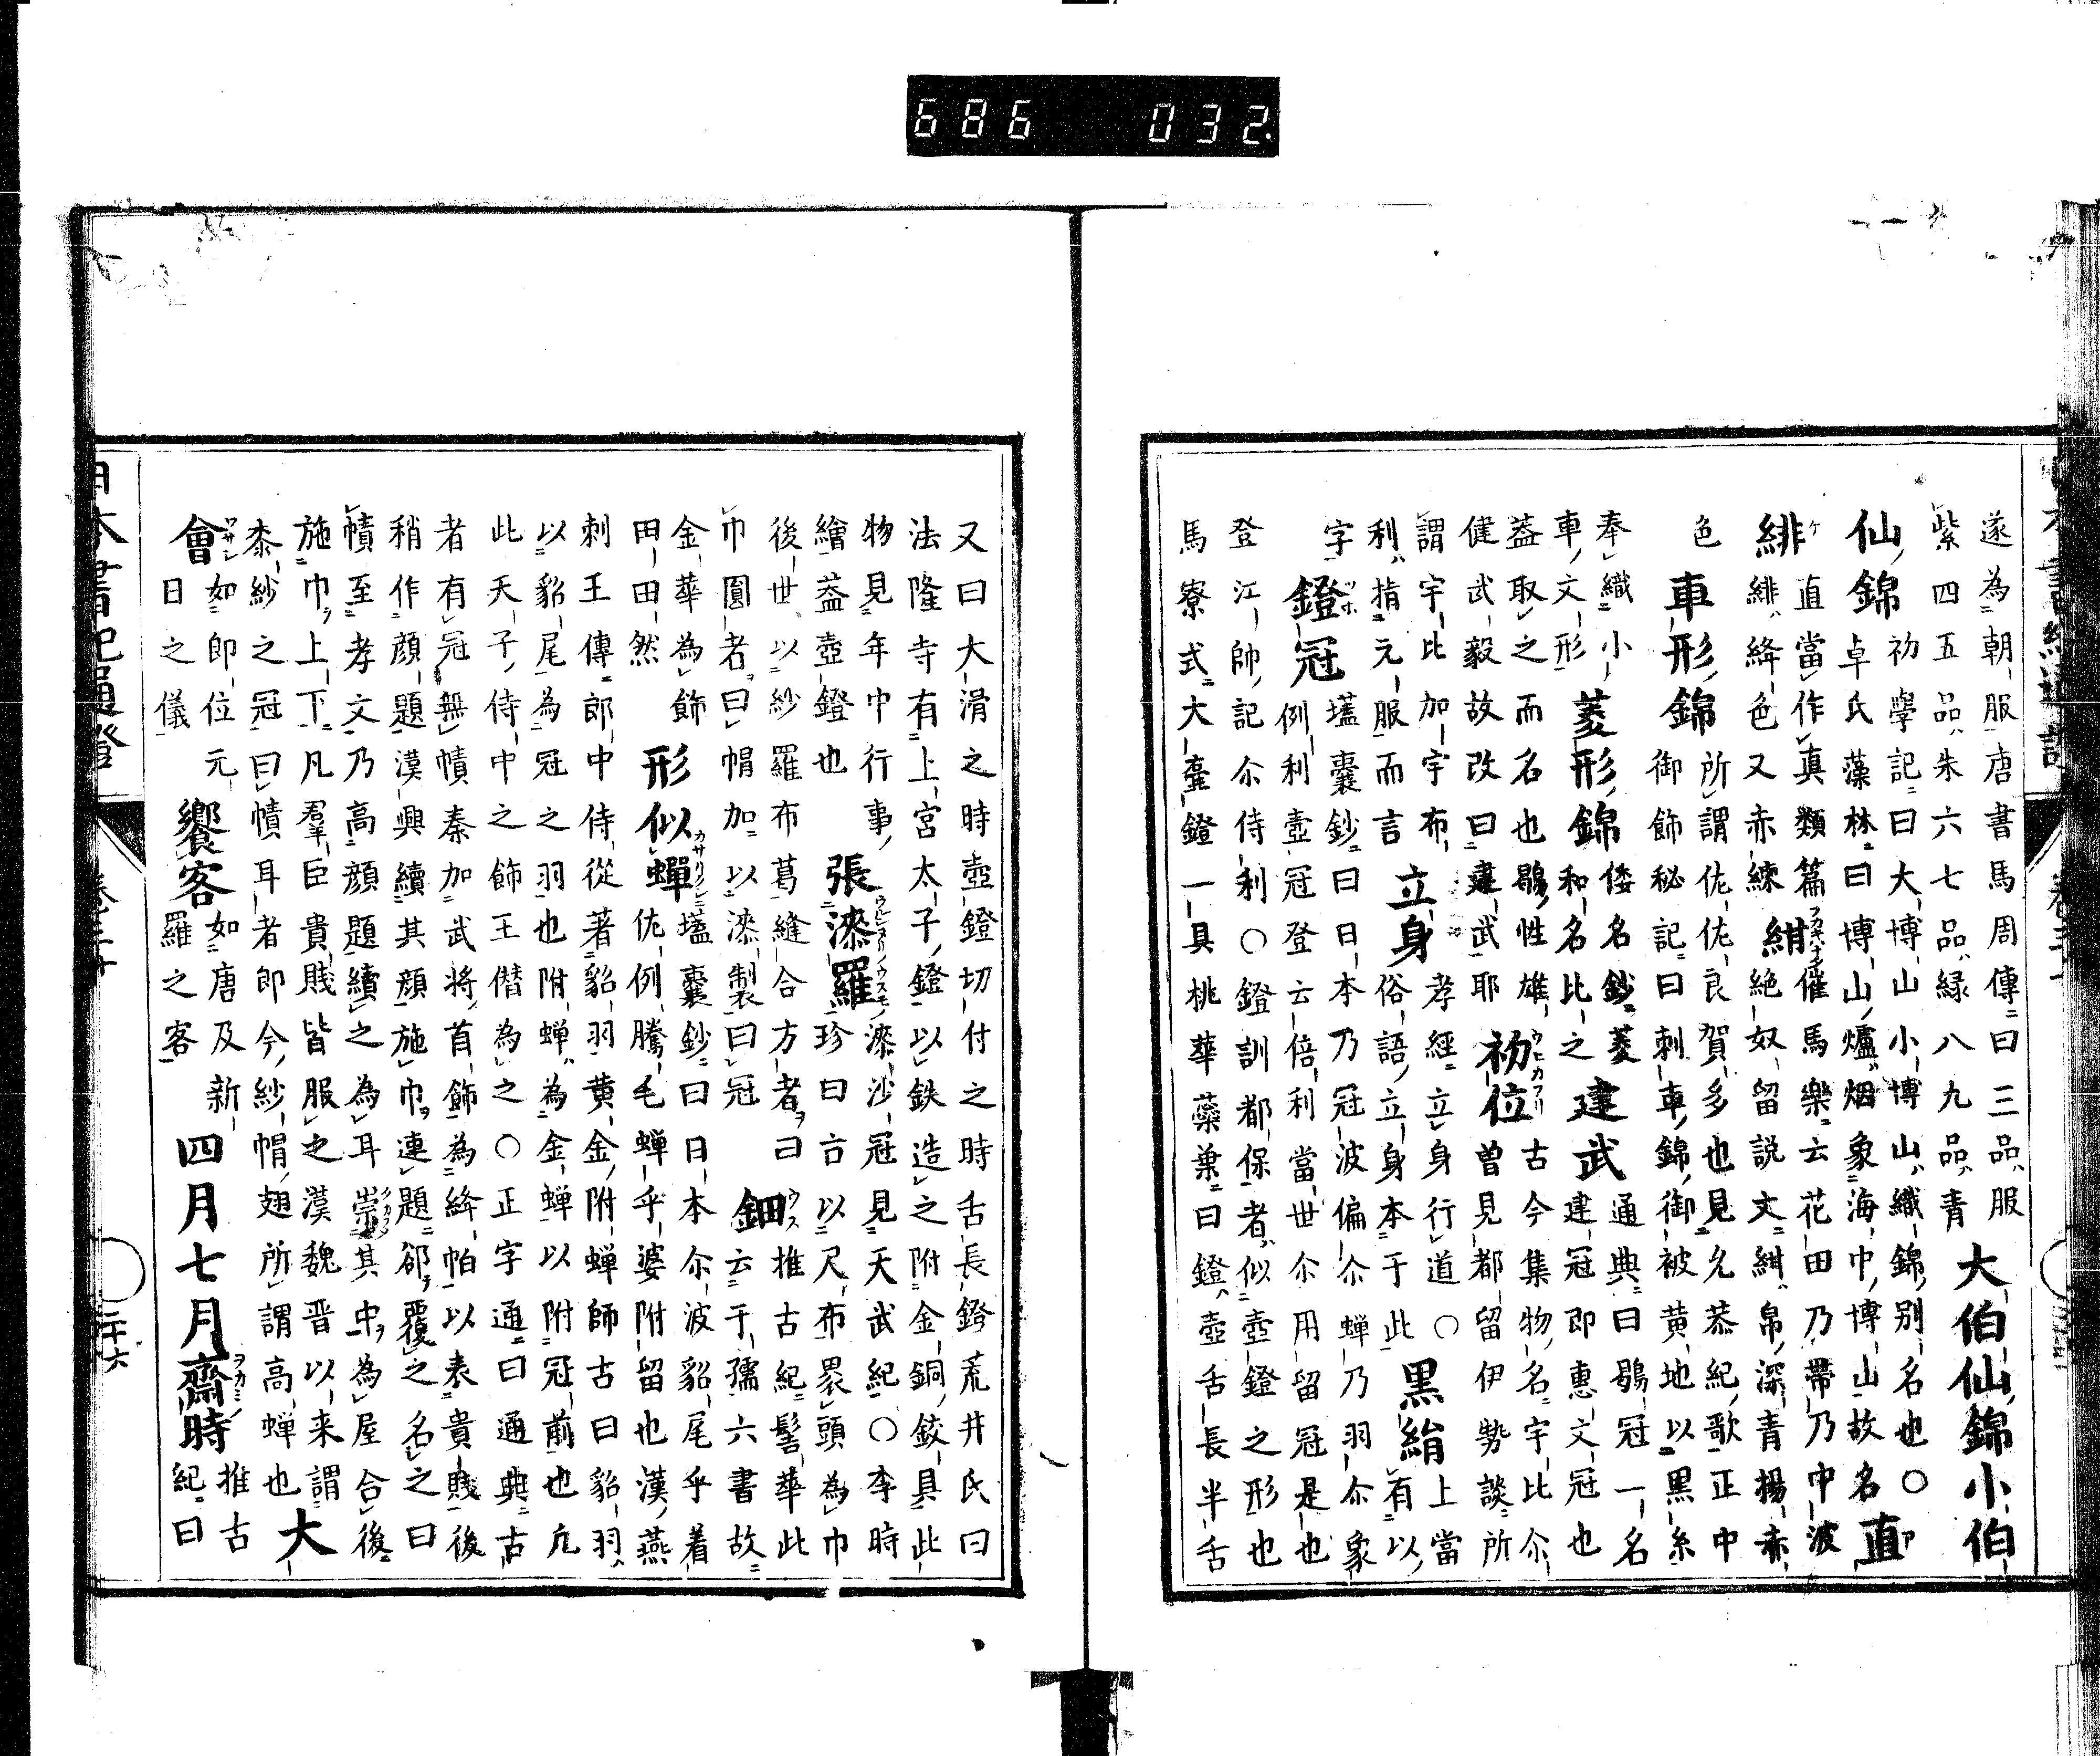 686 032
遂為朝服唐書馬周傳曰三品服
紫四五品朱六七品緑八九品青 大伯仙錦小伯
仙錦 初學記曰大博山小博山織錦別名也○
卓氏藻林曰博山爐烟象海中博山故名 直
直當作真類篇催馬樂云花田乃帯乃中波
緋 緋絳色又赤練 紺 絶奴留説文紺帛深青揚赤
色 車形錦 所謂佐佐良賀多也見允恭紀歌正中
御飾秘記曰刺車錦御被黄地以黒糸
奉織小 菱形錦 倭名鈔菱 建武 通典曰鶡冠一名
車文形 和名比之 建冠即惠文冠也
蓋取之而名也鶡性雄 初位 古今集物名宇比尓
健武毅故改曰建武耶 曽見都留伊勢談所
謂宇比加宇布 立身 孝經立身行道○ 黒絹 上當
利指元服而言 俗語立身本于此 有以
字 鐙冠 壒嚢鈔曰日本乃冠波偏尓蝉乃羽尓象
例利壺冠登云倍利當世尓用留冠是也
登江帥記尓侍利○鐙訓都保者似壺鐙之形也
馬寮式大壷鐙一具桃華蘂葉曰鐙壺舌長半舌
又曰大滑之時壺鐙切付之時舌長鐙荒井氏曰
法隆寺有上宮太子鐙以鉄造之附金銅鉸具此
物見年中行事 張漆羅 漆沙冠見天武紀○李時
繪蓋壺鐙也 珍曰古以尺布裹頭為巾
後世以紗羅布葛縫合方者曰 鈿 推古紀髻華此
巾圓者曰帽加以漆製曰冠 云于孺六書故
金華為飾 形似蝉 壒嚢鈔曰日本尓波貂尾乎着
田田然 佐例騰毛蝉乎婆附留也漢燕
刺王傳郎中侍從著貂羽黄金附蝉師古曰貂羽
以貂尾為冠之羽也附蝉為金蝉以附冠前也亢
此天子侍中之飾王僭為之○正字通曰通典古
者有冠無幘秦加武将首飾為絳帕以表貴賤後
稍作顔題漢興續其顔施巾連題郤覆之名之曰
幘至孝文乃高顔題續之為耳崇其中為屋合後
施巾上下凡羣臣貴賤皆服之漢魏晋以来謂 大
桼紗之冠曰幘耳者即今紗帽翅所謂高蝉也
會 如即位元 饗客 如唐及新 四月七月齋時 推古
日之儀 羅之客 紀曰
日本書紀通證 二十六